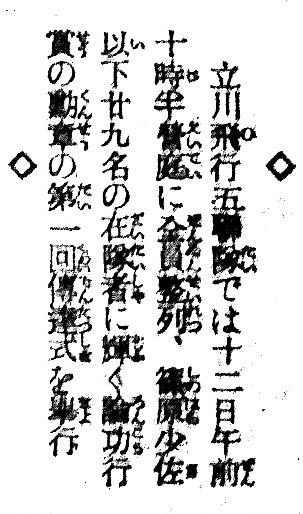 立川飛行五聯隊では十二日午前
十時半營庭に全員整列、篠原少佐
以下廿九名の在隊者に輝く論功行
賞の勳章の第一回傳達式を擧行